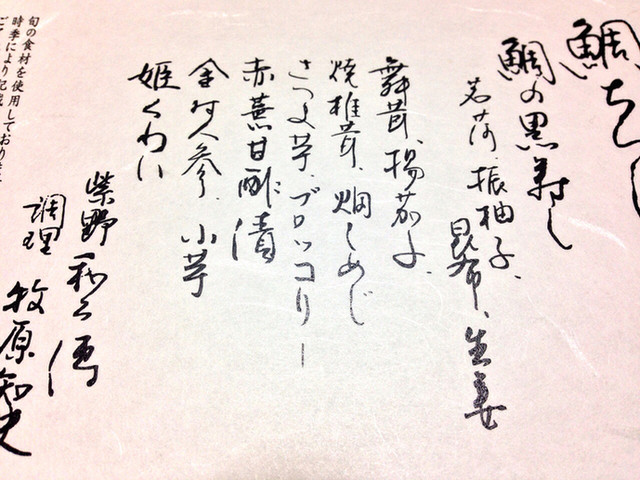 鯛ちらし
鯛の黒寿し
茗荷、振柚子、
昆布、生姜
舞茸、揚茄子、
焼椎茸、畑しめじ
さつま芋、ブロッコリー
赤蕪甘酢漬
金時人参、小芋
姫くわい
紫野和久傳
調理 牧原知史
旬の食材を使用しており
時季により記載